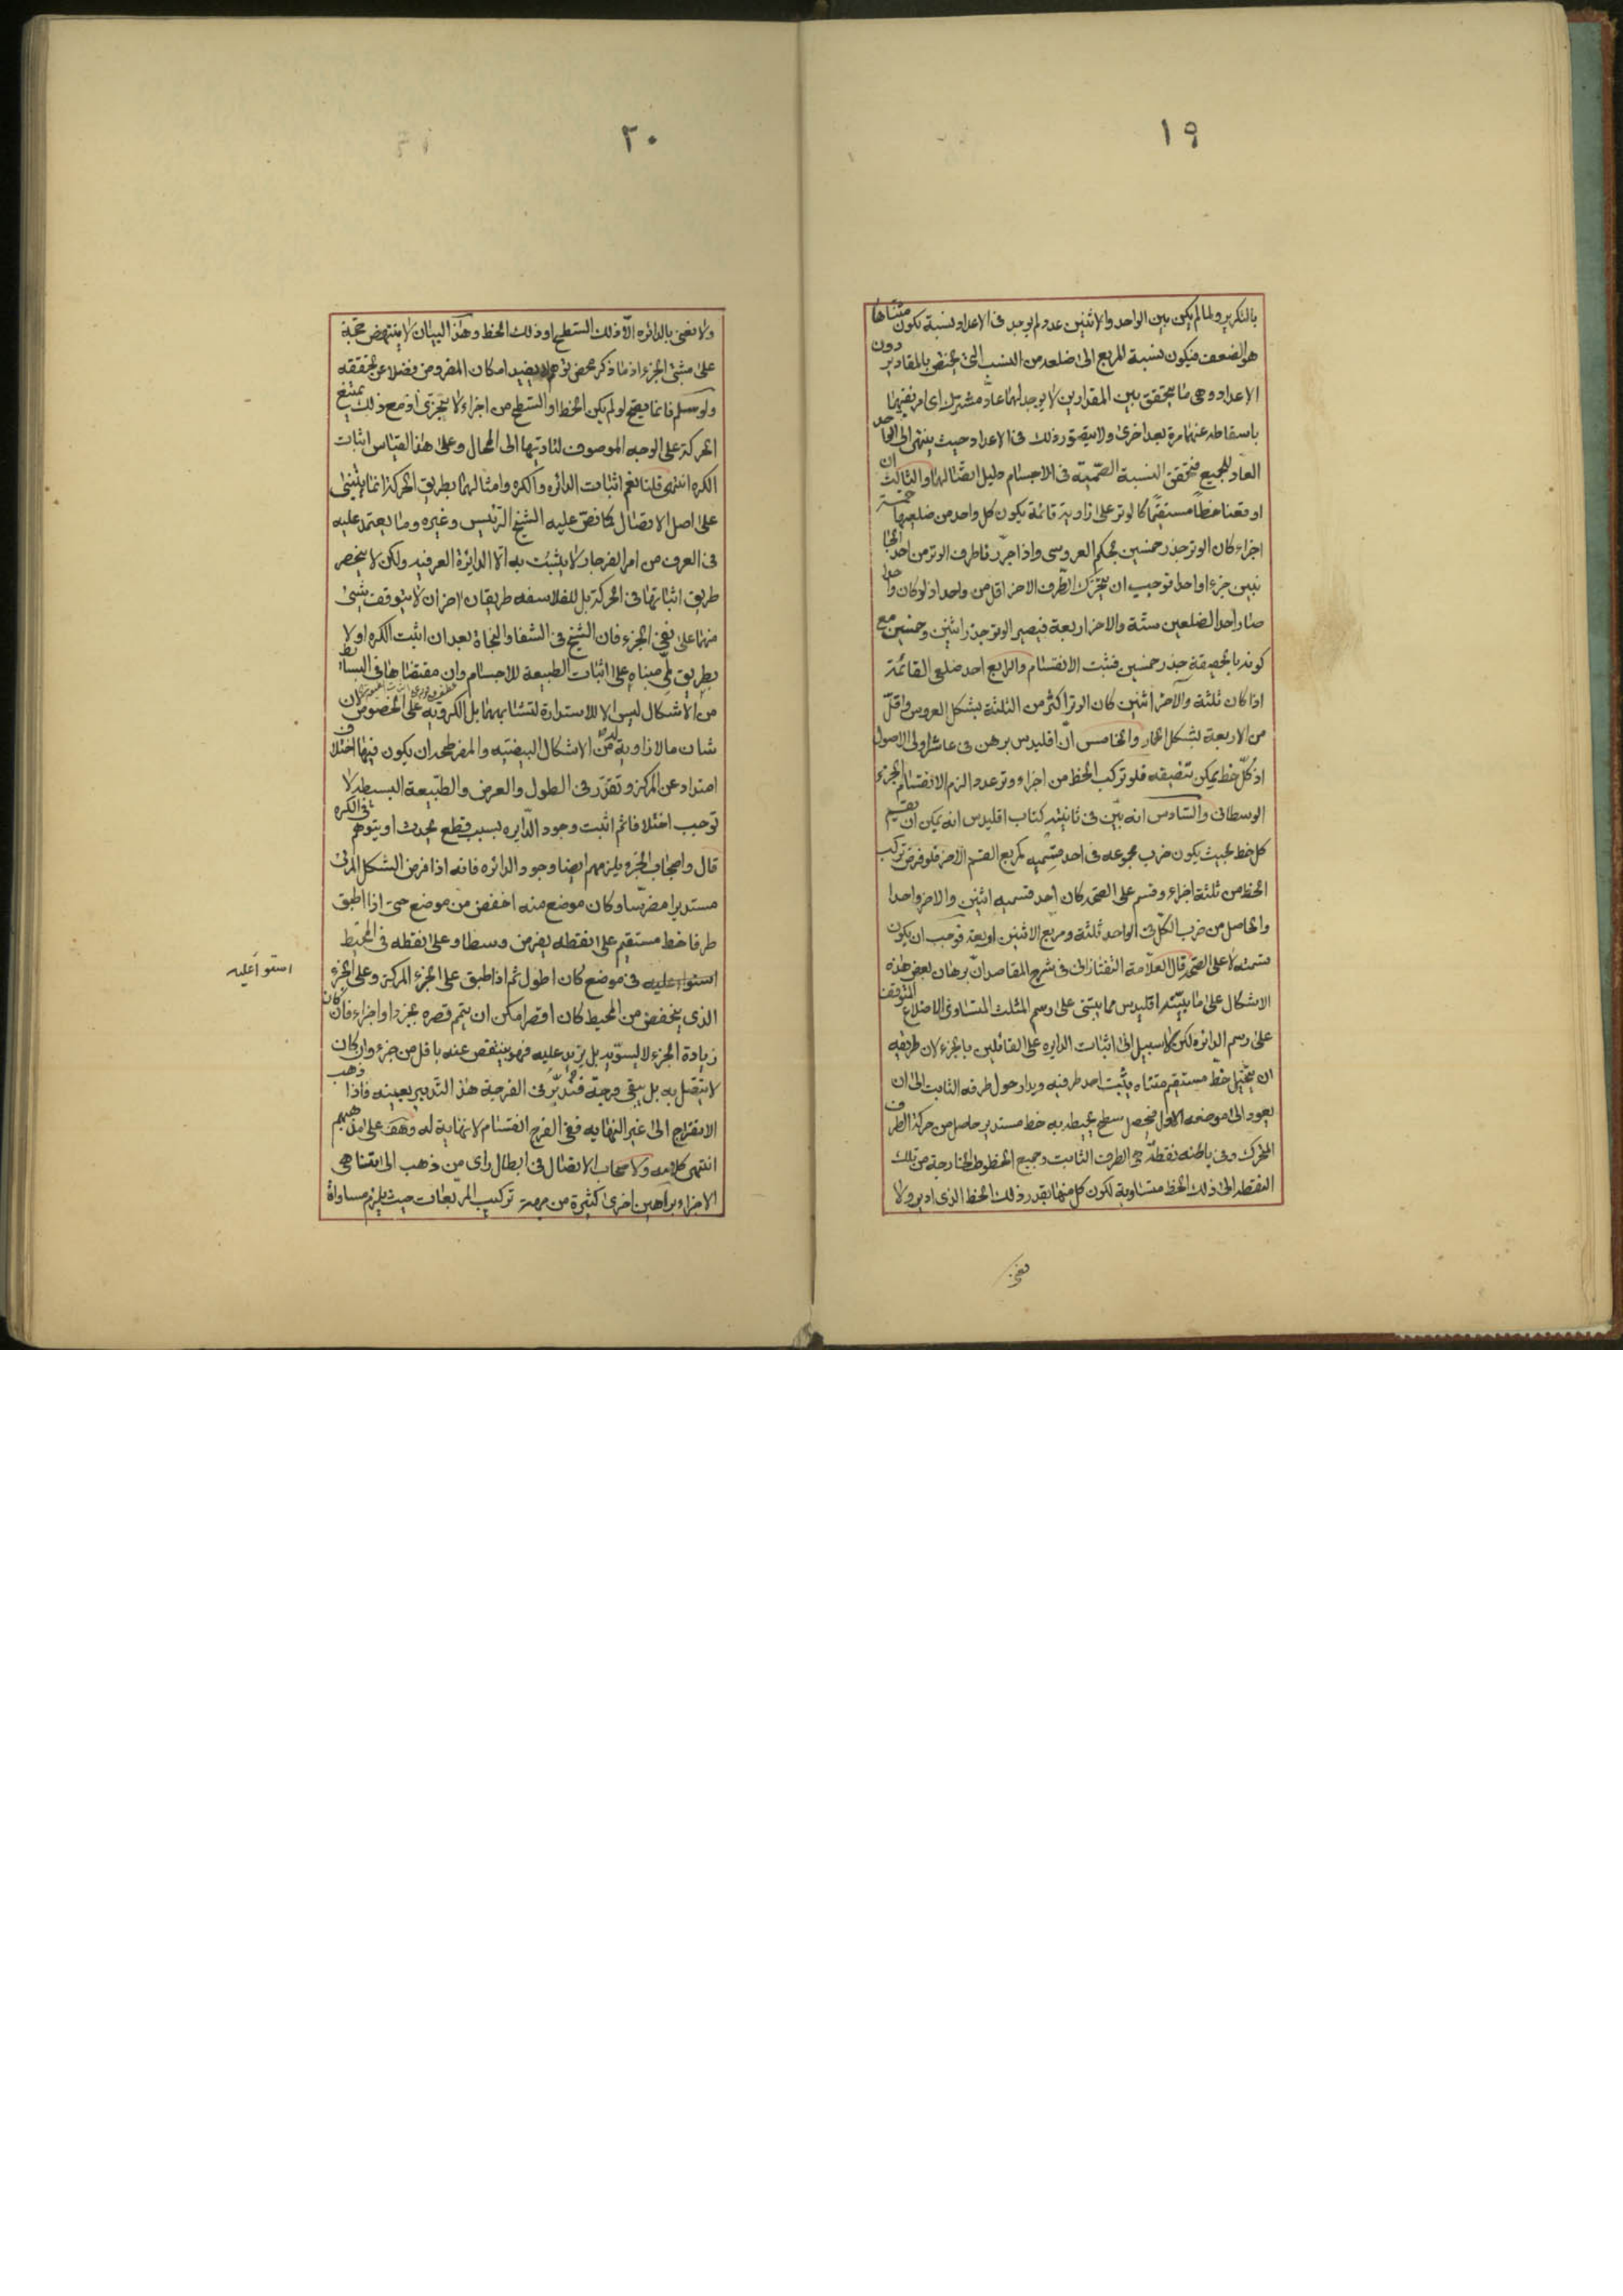 ١٩
بالتكرير ولما لم يكن بين الواحد والاثنين عدد لم يوجد فى الاعداد نسبة تكون مثناها
هو الضعف فيكون نسبة المربع الى ضلعه من النسب التى يختص بالمقادير دون
الاعداد وهى ما يتحقق بين المقدارين لا يوجد لهما عاد مشترك اى امر يفنيهما
باسقاطه عنهما مرة بعد اخرى ولا يتصور ذلك فى الاعداد حيث ينتهى الى الواحد
العاد للجميع فتحقق النسبة الصمية فى الاجسام دليل اتصالها والثالث ان
اوقعنا خطا مستقيما كالوتر على زاوية قائمة يكون كل واحد من ضلعيها خمسة
اجزاء كان الوتر جذر خمسين بحكم العروسى واذا جررنا طرف الوتر من احد الجا
نبين جزءا واحدا توجب ان يتحرك الطرف الاخر اقل من واحد اذ لو كان واحدا
صار احد الضلعين ستة والاخر اربعة فيصير الوتر جذر اثنين وخمسين مع
كونه بالحقيقة جذر خمسين فثبت الانقسام والرابع احد ضلعى القائمة
اذا كان ثلثة والآخر اثنين كان الوتر اكثر من الثلثة بشكل العروس واقل
من الاربعة بشكل الحمار والخامس ان اقليدس برهن فى عاشر اولى الاصول
اذ كل خط يمكن تنصيفه فلو تركب الخط من اجزاء وتر عددا لزم الانقسام الجزء
الوسطانى والسادس انه بين فى ثانية كتاب اقليدس انه يمكن ان يقسم
كل خط بحيث يكون ضرب مجموعه فى احد قسميه كمربع القسم الآخر فلو فرض تركب
الخط من ثلثة اجزاء وقسم على الصحة كان احد قسميه اثنين والاخر واحدا
والحاصل من ضرب الكل فى الواحد ثلثة ومربع الاثنين اربعة فوجب ان يكون
قسمته لا على الصحة قال العلامة التفتازانى فى شرح المقاصد ان برهان بعض هذه
الاشكال على ما بينه اقليدس مما يبتنى على رسم المثلث المتساوى الاضلاع المتوقف
على رسم الدائرة لكن لا سبيل الى اثبات الدايره على القائلين بالجزء لان طريقه
ان يتخيل خط مستقيم متناه يثبت احد طرفيه ويدار حول طرفه الثابت الى ان
يعود الى موضعه الاول فيحصل سطح يحيط به خط مستدير حاصل من حركة الطرف
المتحرك وفى باطنه نقطة هى الطرف الثابت وجميع الخطوط الخارجة من تلك
النقطه الى ذلك الخط متساوية لكون كل منها بقدر ذلك الخط الذى ادير ولا
نعنى
٢٠
ولا نعنى بالدائره الا ذلك السطح او ذلك الخط وهذا البيان لا ينتهض حجة
على مثبتى الجزء اذ ما ذكر محض توهم لا يفيد امكان المفروض فضلا عن تحققه
ولو سلم فانما يصح لو لم يكن الخط او السطح من اجزاء لا يتجزى اذ مع ذلك يمتنع
الحركة على الوجه الموصوف لتاديتها الى المحال وعلى هذا القياس اثبات
الكره انتهى قلنا نعم اثبات الدائره والكره وامثالهما بطريق الحركة انما يبتنى
على اصل الاتصال كما نص عليه الشيخ الرئيس وغيره وما يعتمد عليه
فى العرف من امر الفرجار لا يثبت به الا الدايرة العرفيه ولكن لا ينحصر
طريق اثباتها فى الحركة بل للفلاسفه طريقان اخران لا يتوقف شيئ
منهما على نفى الجزء فان الشيخ فى الشفا والنجاة بعد ان اثبت الكره اولا
بطريق لمى مبناه على اثبات الطبيعة للاجسام وان مقتضاها فى البسائط
من الاشكال ليس الا للاستدارة لتشابهها بل الكرويه على الخصوص لان
شان ما لا زاوية له من الاشكال البيضيه والمفرطحه ان يكون فيها اختلاف
امتداد عن المركز وتقرر فى الطول والعرض والطبيعة البسيطه لا
توجب اختلافا ثم اثبت وجود الدايره بسبب قطع يحدث او يتوهم فى الكره
قال واصحاب الجزء يلزمهم ايضا وجود الدائره فانه اذا فرض الشكل المرئى
مستديرا مضرسا وكان موضع منه اخفض من موضع حتى اذا اطبق
طرفا خط مستقيم على نقطه يفرض وسطا وعلى نقطه فى المحيط
استوا عليه فى موضع كان اطول ثم اذا طبق على الجزء المركزى وعلى الجزء
استوا عليه
الذى ينخفض من المحيط كان اقصر امكن ان يتمم قصره بجزء او اجزاء فان كان
زيادة الجزء لا يسويه بل يزيد عليه فهو ينقص عنه باقل من جزء وان كان
لا يتصل به بل يبقى فرجة فندبر فى الفرجة هذا التدبير بعينه فاذا ذهب
الانفراج الى غير النهايه ففى الفرج انقسام لا نهاية له وهف على مذهبهم
انتهى كلامه ولاصحاب الاتصال فى ابطال راى من ذهب الى تناهى
الاجزاء براهين اخرى كثيرة من جهة تركيب المربعات حيث يلزم مساواة